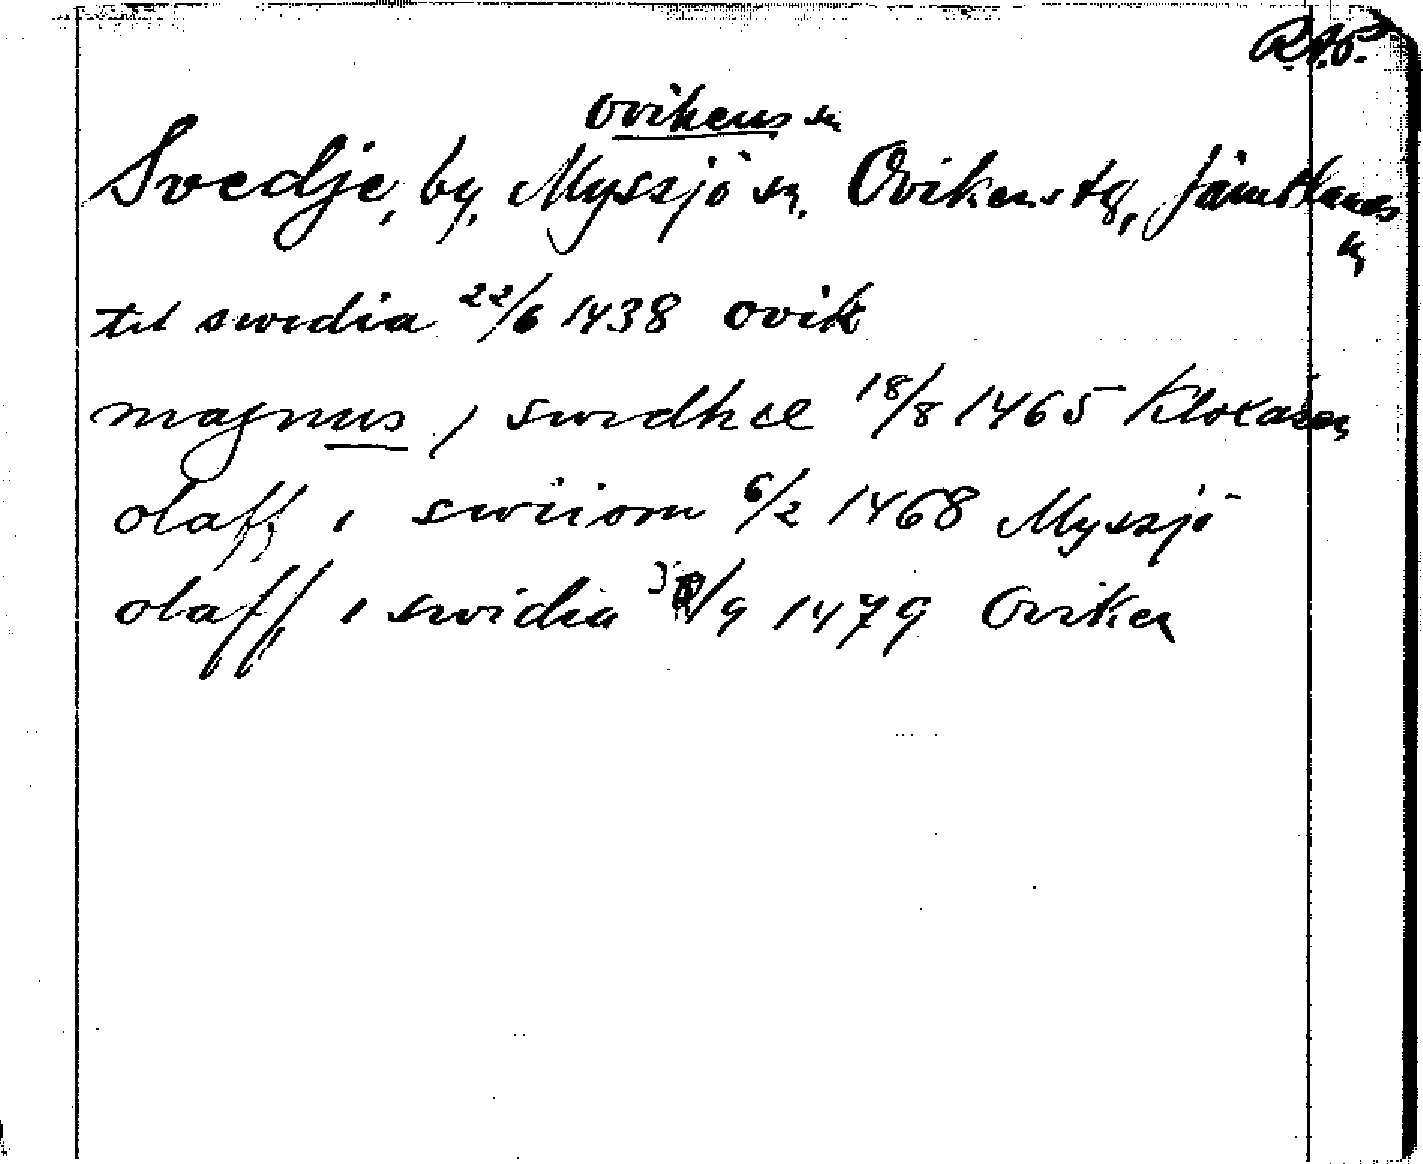 R.A.P.
Ovikens sn
Svedje, by, Myssjö sn, Ovikens tg, Jämtlands
til swedia 22/6 1438 Ovik
magnus i swedhæ 18/8 1465 Klokåsen
olaff i swiiom 6/2 1468 Myssjö
olaff i swidia /9 1479 Oviken